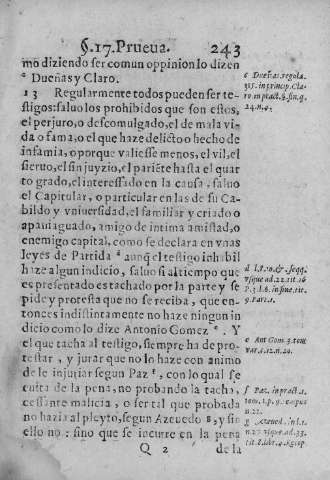 §.17. Prueua. 243
mo diziendo ser comun oppinion lo dizen
c Dueñas y Claro.
13 Regularmente todos pueden ser te-
stigos: saluo los prohibidos que son estos,
el perjuro, o descomulgado, el de mala vi-
da o fama, o el que haze delicto o hecho de
infamia, o porque valiesse menos, el vil, el
sieruo, el sin juyzio, el pariẽte hasta el quar
to grado, el interessado en la causa, saluo
el Capitular, o particular en las de su Ca-
bildo y vniuersidad, el familiar y criado o
apaniaguado, amigo de intima amistad, o
enemigo capital, como se declara en vnas
leyes de Partida d aunq̃ el testigo inhabil
haze algun indicio, saluo si al tiempo que
es presentado es tachado por la parte y se
pide y protesta que no se reciba, que en-
tonces indistintamente no haze ningun in
dicio como lo dize Antonio Gomez e. Y
el que tacha al testigo, siempre ha de pro-
testar, y jurar que no lo haze con animo
de le injuriar segun Paz f, con lo qual se
euita de la pena, no probando la tacha,
cessante malicia, o ser tal que probada
no hazia al pleyto, segun Azeuedo g, y sin
ello no: sino que se incurre en la pena
Q 2 de la
c Dueñas regula.
in princip. Cla-
ro in pract. §. fin. q.
24. n. 4.
d l. 8. 10. &. seqq.
vsque ad 22. tit. 16
P. 3. l. 6. in fine. tit.
9. Part. 1.
e Ant Gom. 3. tom
var. c. 12. n. 20.
f Paz. in pract. 1.
tom. 1. p. 9. tempus
n. 22.
g Azeued. in l. 1.
n. 20 vsque ad. 33.
tit. 8. libr. 4. Recop.